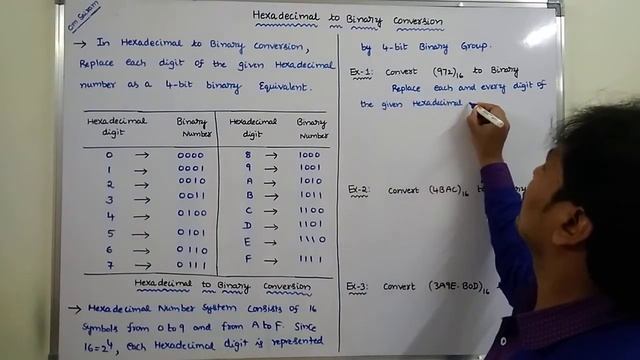 Om Sairam
Hexadecimal to Binary Conversion
→ In Hexadecimal to Binary Conversion,
Replace each digit of the given Hexadecimal
number as a 4-bit binary Equivalent.
Hexadecimal digit Binary Number Hexadecimal digit Binary Number
0 → 0000 8 → 1000
1 → 0001 9 → 1001
2 → 0010 A → 1010
3 → 0011 B → 1011
4 → 0100 C → 1100
5 → 0101 D → 1101
6 → 0110 E → 1110
7 → 0111 F → 1111
Hexadecimal to Binary Conversion
→ Hexadecimal Number System Consists of 16
Symbols from 0 to 9 and from A to F. Since
16=2⁴, each Hexadecimal digit is represented
by 4-bit Binary Group.
Ex-1: Convert (972)₁₆ to Binary
Replace each and every digit of
the given Hexadecimal
Ex-2: Convert (4BAC)₁₆
Ex-3: Convert (3A9E.B0D)₁₆